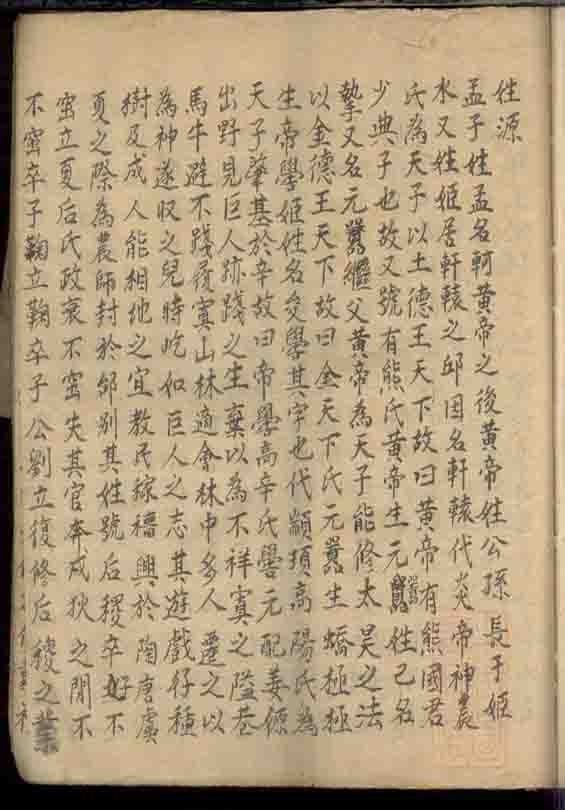 姓源
孟子姓孟名軻黃帝之後黃帝姓公孫長于姬
水又姓姬居軒轅之邱因名軒轅代炎帝神農
氏為天子以土德王天下故曰黃帝有熊國君
少典子也故又號有熊氏黃帝生元囂姓己名
摯又名元囂繼父黃帝為天子能修太昊之法
以金德王天下故曰金天氏元囂生蟜極極
生帝嚳姬姓名夋嚳其字也代顓頊高陽氏為
天子肇基於辛故曰帝嚳高辛氏嚳元配姜嫄
出野見巨人跡踐之生棄以為不祥寘之隘巷
馬牛避不踐後寘山林適會林中多人遷之以
為神遂收之兒時屹如巨人之志其遊戲好種
樹及成人能相地之宜教民稼穡興於陶唐虞
夏之際為農師封於邰別其姓號后稷卒子不
窋立夏后氏政衰不窋失其官奔戎狄之間不
不窋卒子鞠立鞠卒子公劉立復修后稷之業